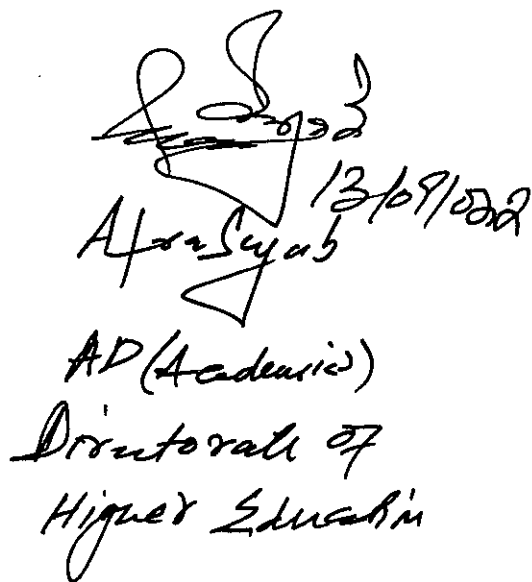 13/09/022
Afrasiyab
AD (Academics)
Directorate of
Higher Education